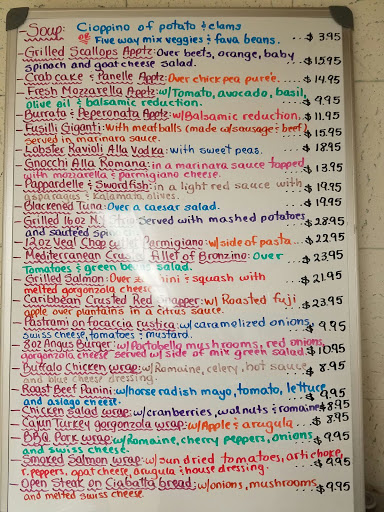 Soup: Cioppino of potato & clams
or Five way mix veggies & fava beans. ...$ 3.95
Grilled Scallops Appts: Over beets, orange, baby
spinach and goat cheese salad. ...$15.95
Crab cake & Panelle Appts: Over chick pea pureé. ...$14.95
Fresh Mozzarella Appts: w/Tomato, avocado, basil,
olive oil & balsamic reduction. ...$ 9.95
Burrata & Peperonata Appts: w/Balsamic reduction. ...$11.95
Fusilli Giganti: With meatballs (made w/sausage & beef)
served in marinara sauce. ...$15.95
Lobster Ravioli Alla Vodka: with sweet peas. ...$18.95
Gnocchi Alla Romana: in a marinara sauce topped
with mozzarella & parmigiano cheese. ...$13.95
Pappardelle & Swordfish: in a light red sauce with
asparagus & Kalamata olives. ...$19.95
Blackened Tuna: Over a caesar salad. ...$19.95
Grilled 16oz N.Y. Served with mashed potatoes
and sauteed spinach ...$28.95
12oz Veal Chop Parmigiano: w/side of pasta. ...$22.95
Mediterranean Crusted Fillet of Bronzino: Over
Tomatoes & green salad. ...$23.95
Grilled Salmon: Over & squash with
melted gorgonzola cheese ...$21.95
Caribbean Crusted Red Snapper: w/ Roasted fuji
apple over plantains in a citrus sauce. ...$23.95
Pastrami on focaccia rustica: w/caramelized onions,
swiss cheese, tomatoes & mustard. ...$ 9.95
8oz Angus Burger: w/Portobello mushrooms, red onions,
gorgonzola cheese served w/ side of mix green salad. ...$10.95
Buffalo chicken wrap: w/Romaine, celery, hot sauce
and blue cheese dressing. ...$ 8.95
Roast Beef Panini: w/horseradish mayo, tomato, lettuce
and asiago cheese. ...$ 9.95
Chicken Salad wrap: w/cranberries, walnuts & romaine. $8.95
Cajun Turkey gorgonzola wrap: w/Apple & arugula. ...$ 8.95
BBQ Pork wrap: w/Romaine, cherry peppers, onions
and swiss cheese. ...$ 9.95
Smoked Salmon wrap: w/ sun dried tomatoes, artichoke,
r. peppers, goat cheese, arugula & house dressing. ...$ 9.95
Open Steak on Ciabatta bread: w/onions, mushrooms
and melted swiss cheese. ...$ 9.95